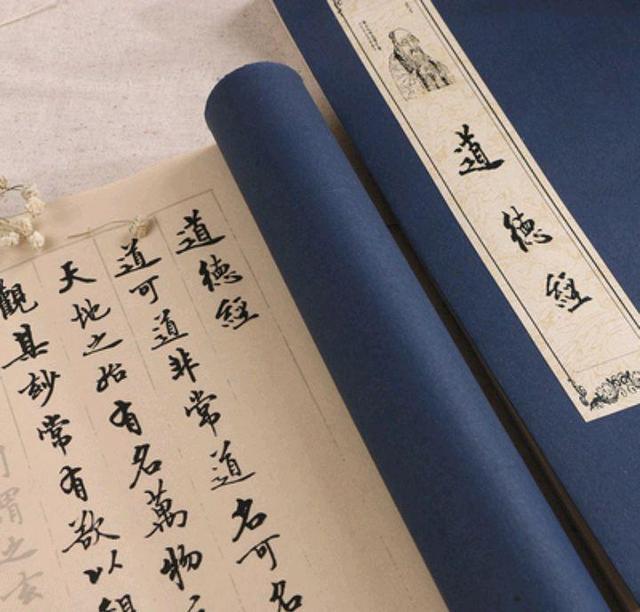 道德經
道德經
道可道非常道名可名
天地之始有名萬物
觀其妙常有欲以觀
謂之玄